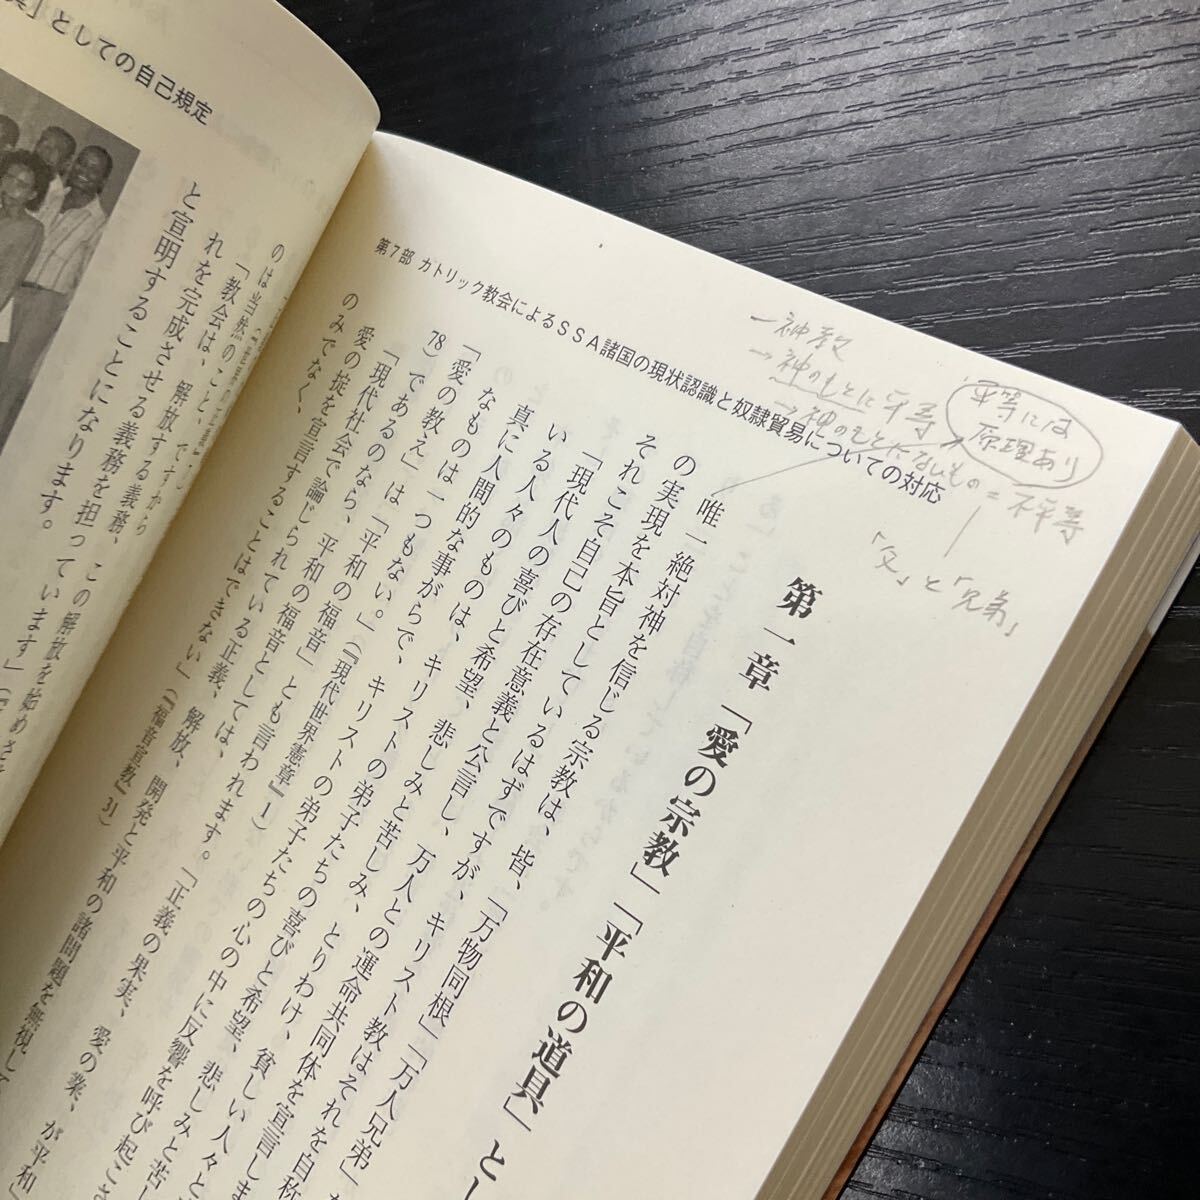 第7部 カトリック教会によるSSA諸国の現状認識と奴隷貿易についての対応
一神教
→神のもとに平等
→神のもとにないもの=不平等
平等には
原理あり
「父」と「兄弟」
第一章 「愛の宗教」「平和の道具」とし
唯一絶対神を信じる宗教は、皆、「万物同根」「万人兄弟」
の実現を本旨としているはずですが、キリスト教はそれを自称
それこそ自己の存在意義と公言し、万人との運命共同体を宣言しま
「現代人の喜びと希望、悲しみと苦しみ、とりわけ、貧しい人々と
いる人々の喜びと希望、悲しみと苦し
真に人間的な事がらで、キリストの弟子たちの心の中に反響を呼び起こさ
なものは一つもない。」(『現代世界憲章』1)
「愛の教え」は「平和の福音」とも言われます。「正義の果実、愛の業、が平和」
78)であるのなら、
「現代社会で論じられている正義、解放、開発と平和の諸問題を無視して
愛の掟を宣言することはできない」(『福音宣教』31)
のみでなく、
」としての自己規定
「教会は、解放する義務、
れを完成させる義務を担っています」
と宣明することになります。
この解放を始めさせ
のは当然のこと、
ですから